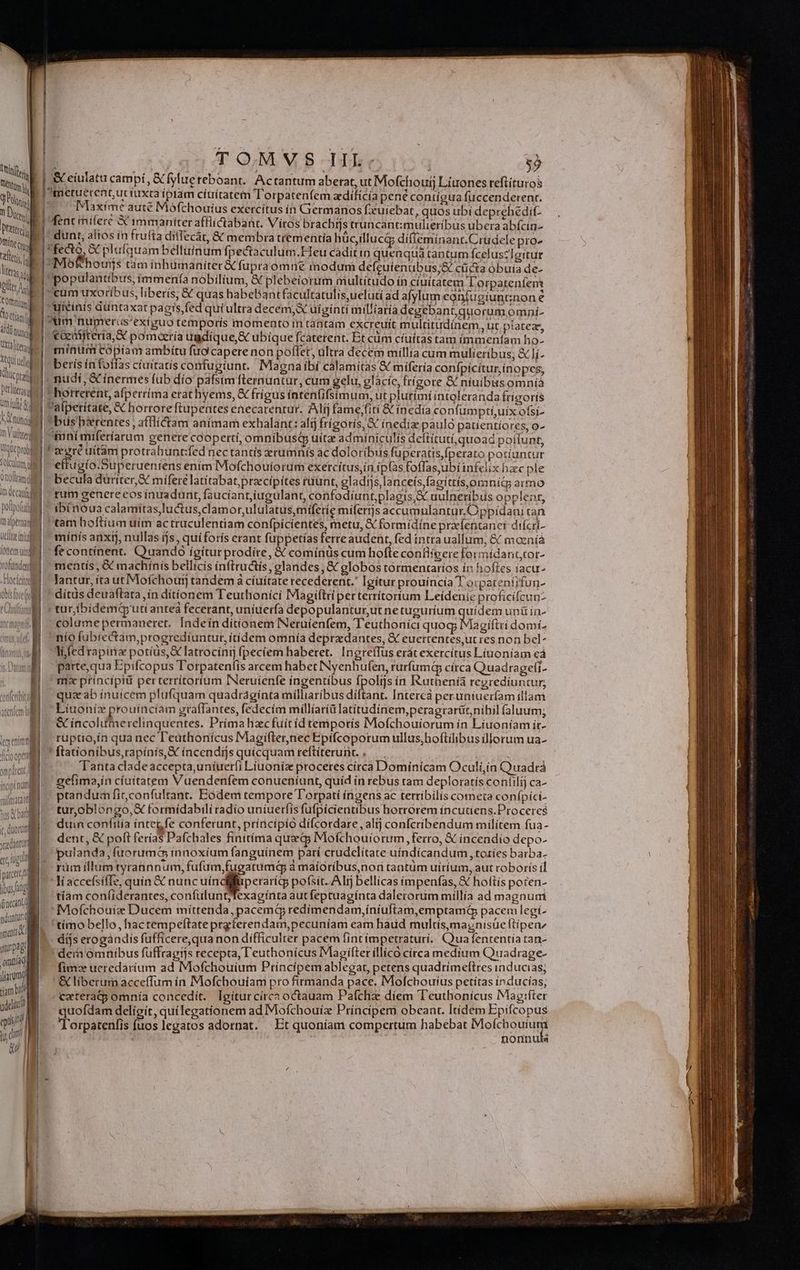 TOMVS III. 59
& eiulatu campi, & syluę reboant. Ac tantum aberat, ut Moschouij Liuones restituros
metuerent, ut iuxta ipsam ciuitatem Torpatensem ædificia penè contigua succenderent.
Maximè autē Moschouius exercitus in Germanos sæuiebat, quos ubi deprehēdis-
sent miserè & immaniter afflictabant. Viros brachijs truncant: mulieribus ubera abscin-
dunt, alios in frusta dissecāt, & membra trementia hùc, illucq́ disseminant. Crudele pro-
fectò, & plusquam belluinum spectaculum. Heu cadit in quenquā tantum scelus? Igitur
Moschouijs tàm inhumaniter & supra omnē modum desæuientibus, & cūcta obuia de-
populantibus, immensa nobilium, & plebeiorum multitudo in ciuitatem Torpatensem
cum uxoribus, liberis, & quas habebant facultatulis, ueluti ad asylum confugiunt: non è
uicinis duntaxat pagis, sed qui ultra decem, & uiginti milliaria degebant, quorum omni-
um numerus exiguo temporis momento in tantam excreuit multitudinem, ut plateæ,
cœmiteria, & pomœria undique, & ubique scaterent. Et cùm ciuitas tam immensam ho-
minum copiam ambitu suo capere non posset, ultra decem millia cum mulieribus, & li-
beris in fossas ciuitatis confugiunt. Magna ibi calamitas & miseria conspicitur, inopes,
nudi, & inermes sub dio passim sternuntur, cum gelu, glacie, frigore & niuibus omnia
horrerent, asperrima erat hyems, & frigus intensissimum, ut plurimi intoleranda frigoris
asperitate, & horrore stupentes enecarentur. Alij fame, siti & inedia consumpti, uix ossi-
bus hærentes, afflictam animam exhalant: alij frigoris, & inediæ paulò patientiores, o-
mni miseriarum genere cooperti, omnibusq́ uitæ adminiculis destituti, quoad possunt,
ægrè uitam protrahunt: sed nec tantis ærumnis ac doloribus superatis, sperato potiuntur
effugio. Superueniens enim Moschouiorum exercitus, in ipsas fossas, ubi infelix hæc ple
becula duriter, & miserè latitabat, præcipites ruunt, gladijs, lanceis, sagittis, omniq́ armo
rum genere eos inuadunt, sauciant, iugulant, confodiunt, plagis, & uulneribus opplent,
ibi noua calamitas, luctus, clamor, ululatus, miseriæ miserijs accumulantur. Oppidani tan
tam hostium uim ac truculentiam conspicientes, metu, & formidine præsentanei discri-
minis anxij, nullas ijs, qui foris erant suppetias ferre audent, sed intra uallum, & mœnia
se continent. Quando igitur prodire, & cominùs cum hoste confligere formidant, tor-
mentis, & machinis bellicis instructis, glandes, & globos tormentarios in hostes iacu-
lantur, ita ut Moschouij tandem à ciuitate recederent. Igitur prouincia Torpatensi fun-
ditùs deuastata, in ditionem Teuthonici Magistri per territorium Leidense proficiscun-
tur, ibidemq́ uti anteà fecerant, uniuersa depopulantur, ut ne tugurium quidem unū in-
colume permaneret. Inde in ditionem Neruiensem, Teuthonici quoq; Magistri domi-
nio subiectam, progrediuntur, itidem omnia deprædantes, & euertentes, ut res non bel-
li, sed rapinæ potiùs, & latrocinij speciem haberet. Ingressus erāt exercitus Liuoniam eà
parte, qua Episcopus Torpatensis arcem habet Nyenhusen, rursumq́ circa Quadragesi-
mæ principiū per territorium Neruiense ingentibus spolijs in Rutheniā regrediuntur,
quæ ab inuicem plusquam quadraginta milliaribus distant. Intereà per uniuersam illam
Liuoniæ prouinciam grassantes, sedecim milliariū latitudinem, peragrarūt, nihil saluum,
& incolume relinquentes. Prima hæc fuit id temporis Moschouiorum in Liuoniam ir-
ruptio, in qua nec Teuthonicus Magister, nec Episcoporum ullus, hostilibus illorum ua-
stationibus, rapinis, & incendijs quicquam restiterunt.
Tanta clade accepta, uniuersi Liuoniæ proceres circa Dominicam Oculi, in Quadra
gesima, in ciuitatem Vuendensem conueniunt, quid in rebus tam deploratis consilij ca-
ptandum sit, consultant. Eodem tempore Torpati ingens ac terribilis cometa conspici-
tur, oblongo, & formidabili radio uniuersis suspicientibus horrorem incutiens. Proceres
dum consilia inter se conferunt, principiò discordare, alij conscribendum militem sua-
dent, & post ferias Paschales finitima quæq́ Moschouiorum, ferro, & incendio depo-
pulanda, suorumq́ innoxium sanguinem pari crudelitate uindicandum, toties barba-
rùm illum tyrannnum, fusum, fugatumq́ à maioribus, non tantùm uirium, aut roboris il
li accessisse, quin & nunc uinci superariq́ possit. Alij bellicas impensas, & hostis poten-
tiam considerantes, consulunt, sexaginta aut septuaginta dalerorum millia ad magnum
Moschouiæ Ducem mittenda, pacemq́ redimendam, iniustam, emptamq́ pacem legi-
timo bello, hac tempestate præferendam, pecuniam eam haud multis, magnisúe stipen-
dijs erogandis sufficere, qua non difficulter pacem sint impetraturi. Qua sententia tan-
dem omnibus suffragijs recepta, Teuthonicus Magister illicò circa medium Quadrage-
simæ ueredarium ad Moschouium Principem ablegat, petens quadrimestres inducias,
& liberum accessum in Moschouiam pro firmanda pace. Moschouius petitas inducias,
cæteraq́ omnia concedit. Igitur circa octauam Paschæ diem Teuthonicus Magister
quosdam deligit, qui legationem ad Moschouiæ Principem obeant. Itidem Episcopus
Torpatensis suos legatos adornat. Et quoniam compertum habebat Moschouium
nonnula